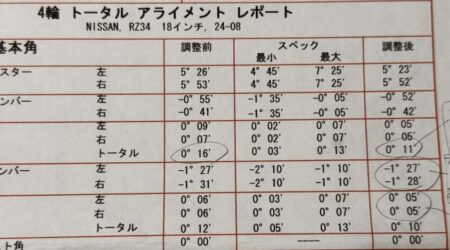 4輪 トータル アライメント レポート
NISSAN, RZ34 18インチ, 24-08
基本角 調整前 スペック 調整後
最小 最大
スター 左 5° 26' 4° 45' 7° 25' 5° 23'
右 5° 53' 4° 45' 7° 25' 5° 52'
ンバー 左 -0° 55' -1° 35' -0° 05' -0° 52'
右 -0° 41' -1° 35' -0° 05' -0° 42'
左 0° 09' 0° 02' 0° 07' 0° 05'
右 0° 07' 0° 02' 0° 07' 0° 05'
トータル 0° 16' 0° 03' 0° 13' 0° 11'
ンバー 左 -1° 27' -2° 10' -1° 10' -1° 27'
右 -1° 31' -2° 10' -1° 10' -1° 28'
左 0° 06' 0° 03' 0° 07' 0° 05'
右 0° 06' 0° 03' 0° 07' 0° 05'
トータル 0° 12' 0° 05' 0° 13' 0° 10'
ト角 0° 00' ---- 0° 00'